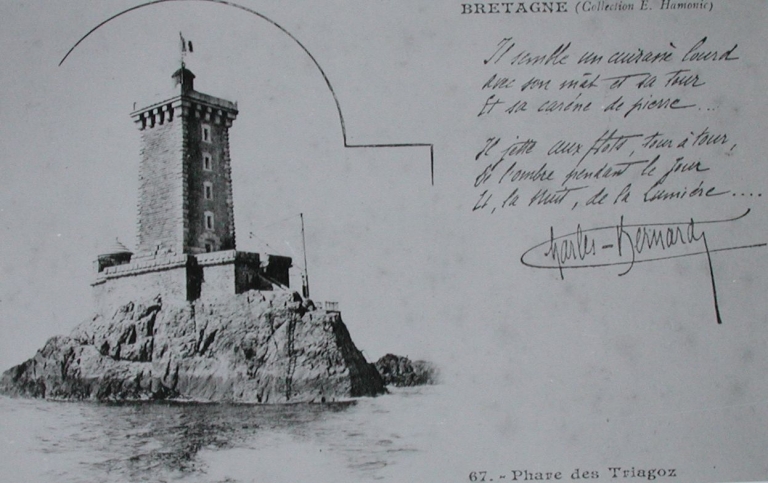 BRETAGNE (Collection E. Hamonic)
Il semble un cuirassé lourd
avec son mât et sa tour
Et sa carène de pierre...
Il jette aux flots, tour à tour,
De l'ombre pendant le Jour
Et, la Nuit, de la Lumière....
Charles-Bernard
67. - Phare des Triagoz